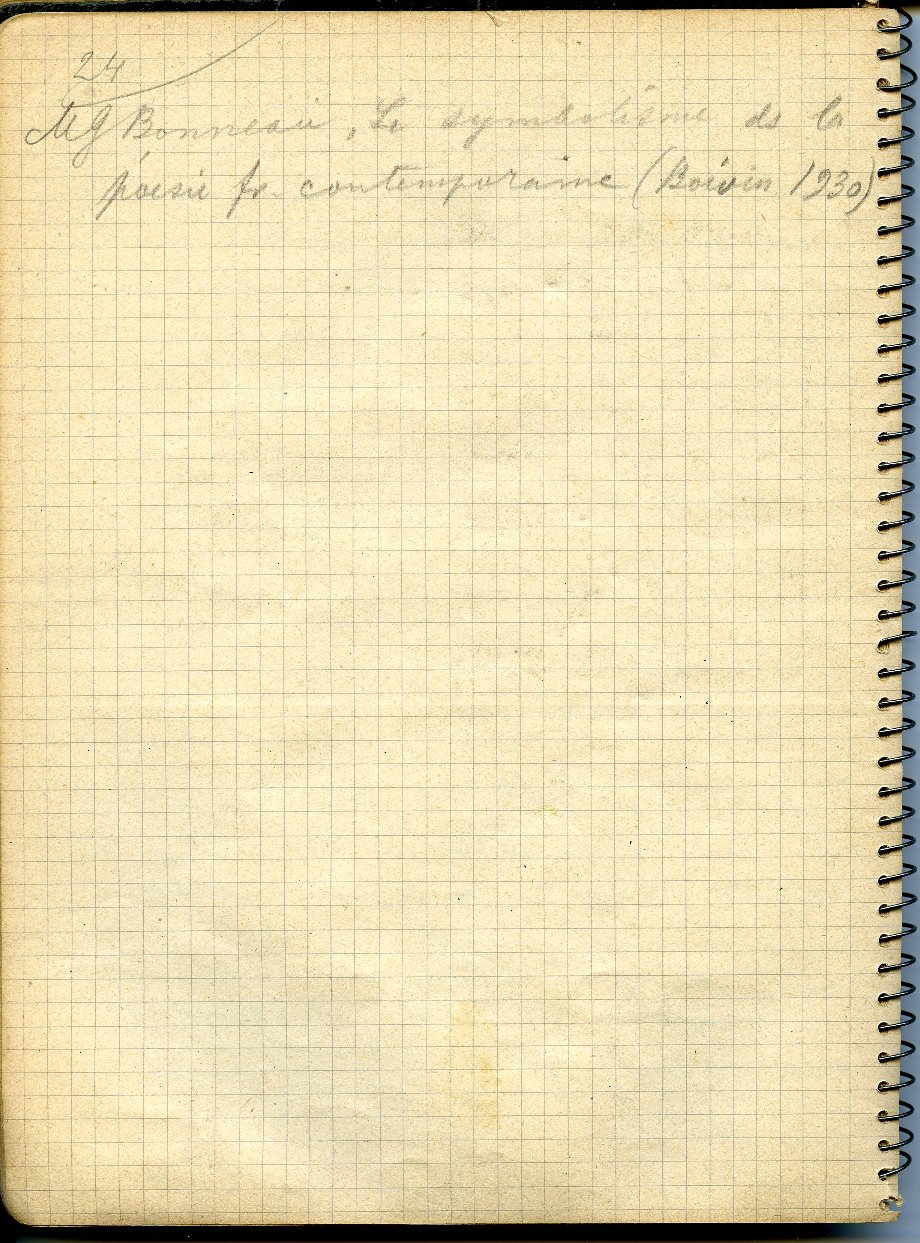 24
M G Bonneau, Le symbolisme ds la
póesie fr. contemporaine (Boivin 1930)